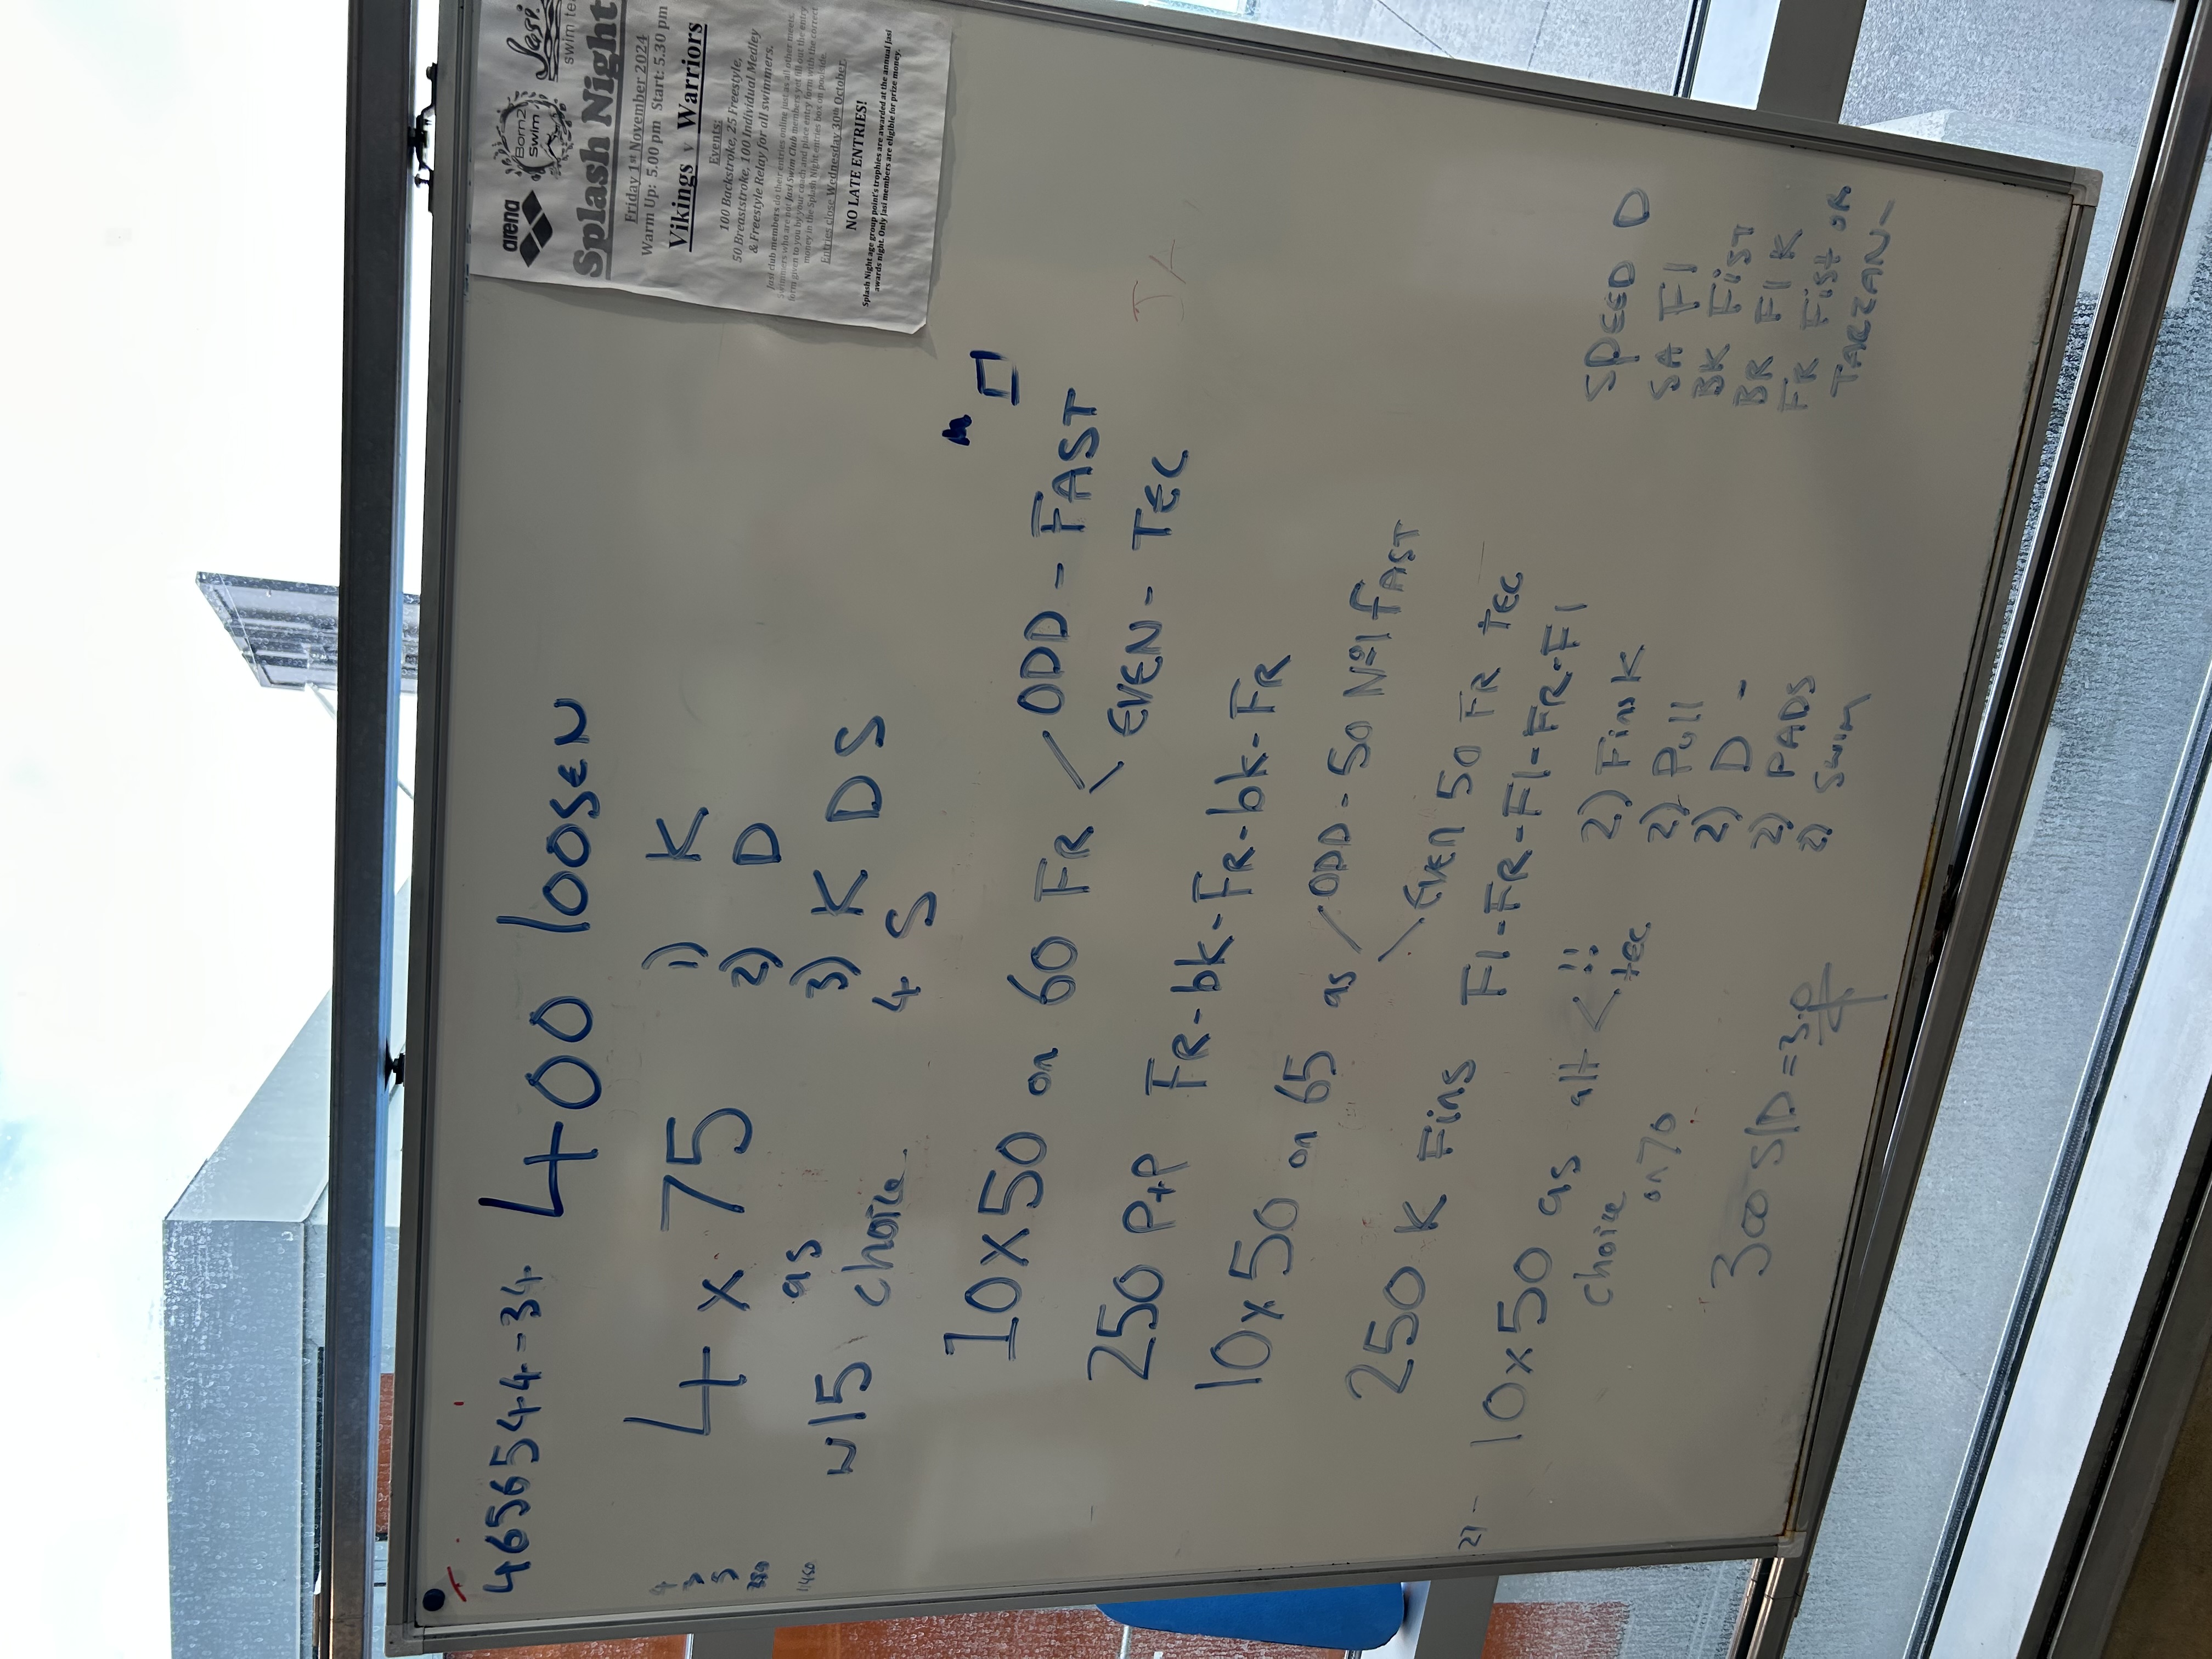 4656544-34
400 loosen
4 x 75
as
w15 choice
1) K
2) D
3) K D S
4 S
10x50 on 60 FR < ODD - FAST
EVEN - TEC
250 P+P FR-bk-FR-bk-FR
10x50 on 65 as ODD - 50 No1 fAST
EVEN 50 FR tEC
250 K Fins FI-FR-FI-FR-FI
27 -
10x50 as alt < !!
tec
choice
on 70
2) Fins K
2) Pull
2) D -
2) PADS
2) Swim
300 S/D = 3.0
SPEED D
SA FI
BK FiST
BR FI K
FR Fist OR
TARZAN-
4
5
350
1450
arena
Born2
Swim
Jasi
swim te
Splash Night
Friday 1st November 2024
Warm Up: 5.00 pm Start: 5.30 pm
Vikings v Warriors
Events:
100 Backstroke, 25 Freestyle,
50 Breaststroke, 100 Individual Medley
& Freestyle Relay for all swimmers.
Jasi club members do their entries online just as all other meets.
Swimmers who are not Jasi Swim Club members yet fill out the entry
form given to you by your coach and place entry form with the correct
money in the Splash Night entries box on poolside.
Entries close Wednesday 30th October.
NO LATE ENTRIES!
Splash Night age group point's trophies are awarded at the annual Jasi
awards night. Only Jasi members are eligible for prize money.